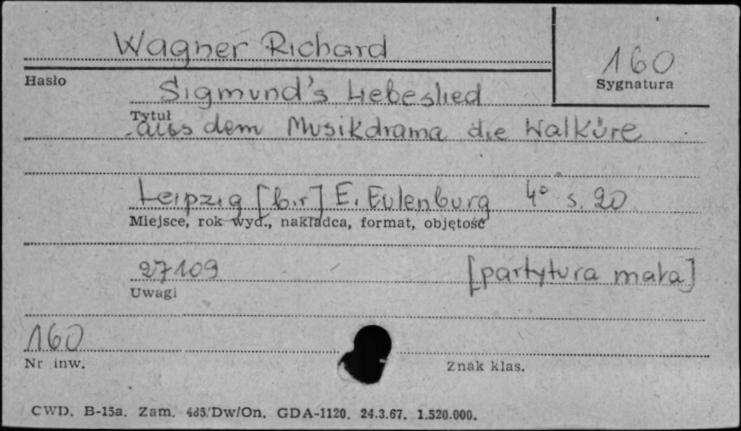 Wagner Richard
160
Hasło
Sygnatura
Sigmund's Liebeslied
Tytuł
aus dem Musikdrama die Walküre
Leipzig [b.r] E. Eulenburg 4° s. 20
Miejsce, rok wyd., nakładca, format, objętość
27109 [partytura mała]
Uwagi
160
Nr inw.
Znak klas.
CWD. B-15a. Zam. 485/Dw/On. GDA-1120. 24.3.67. 1.520.000.